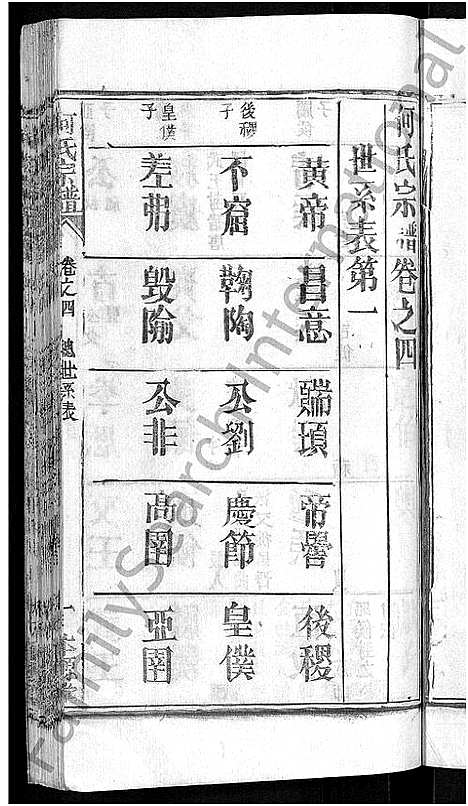 何氏宗譜卷之四
世系表第一
黃帝 昌意 顓頊 帝嚳 後稷
後稷子 不窟 鞠陶 公劉 慶節 皇僕
皇僕子 差弗 毀隃 公非 高圉 亞圉
何氏宗譜 卷之四 總世系表 一
FamilySearch International